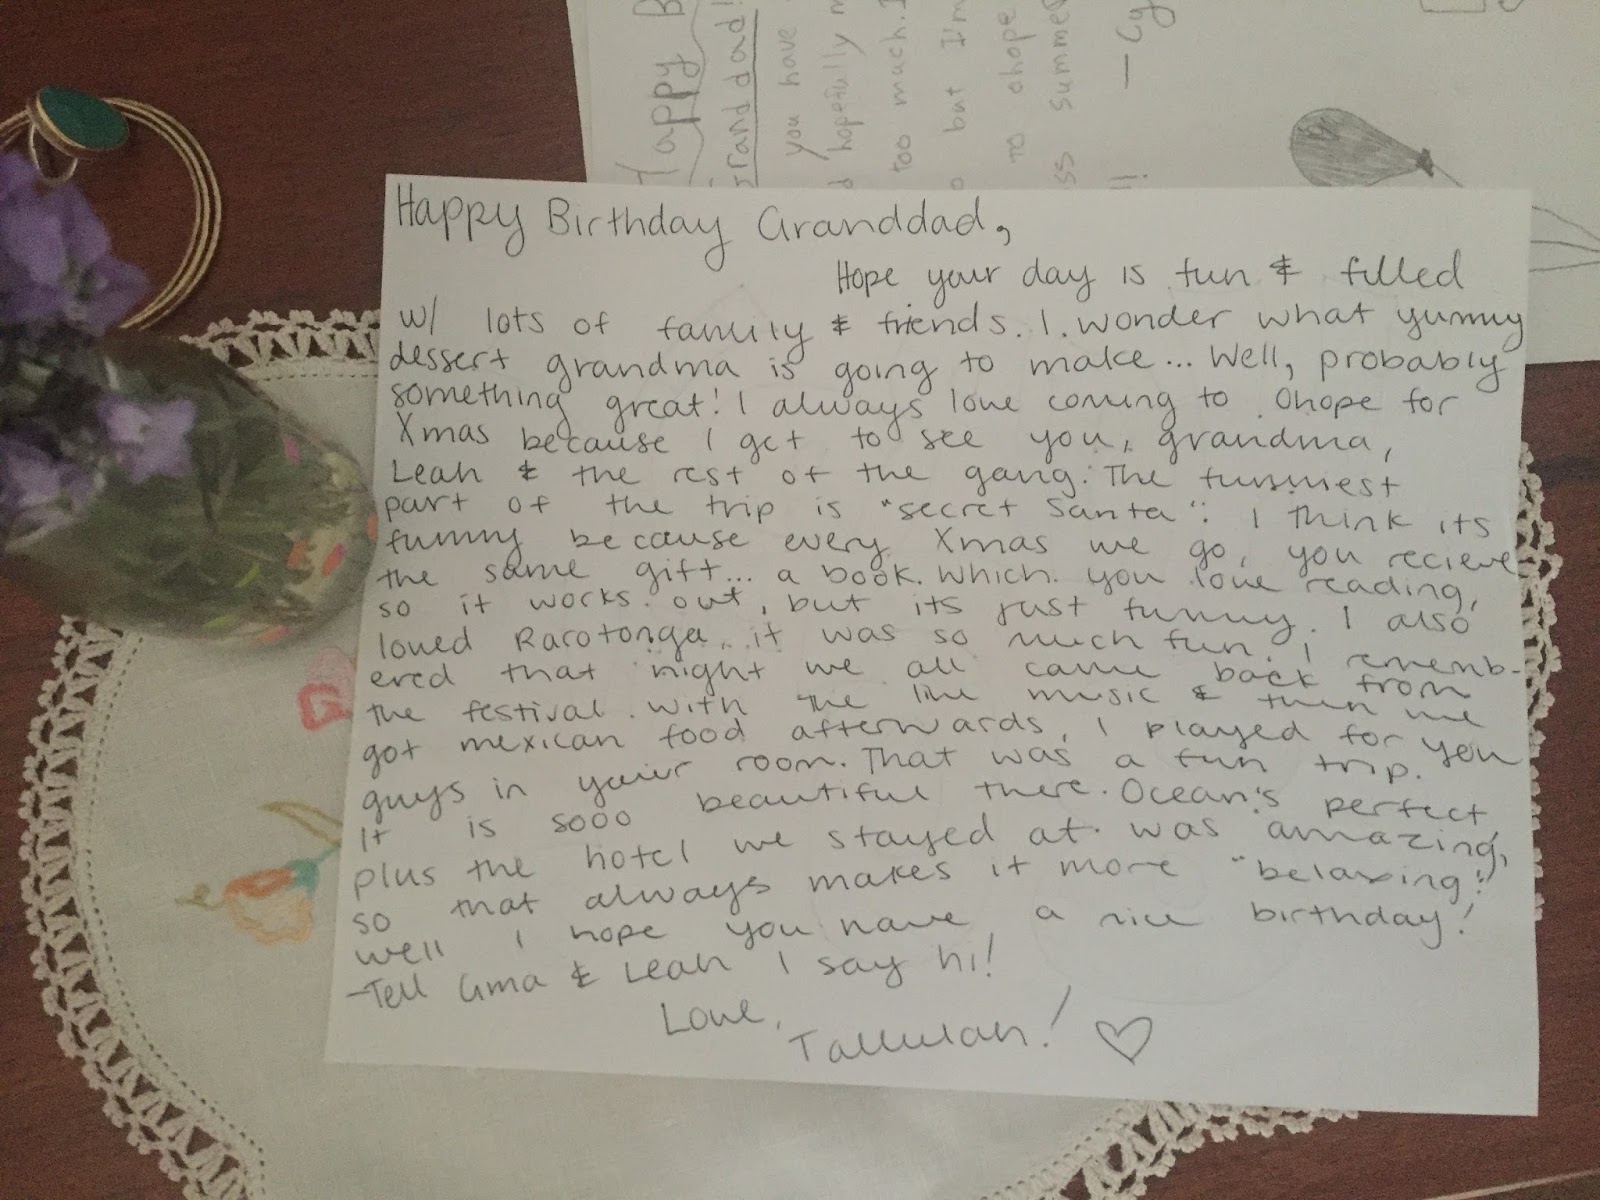 Happy Birthday Granddad,
Hope your day is fun & filled
w/ lots of family & friends. I wonder what yummy
dessert grandma is going to make... Well, probably
something great! I always love coming to Ohope for
Xmas because I get to see you, grandma,
Leah & the rest of the gang. The funniest
part of the trip is "secret Santa". I think its
funny because every Xmas we go, you recieve
the same gift... a book. Which you love reading,
so it works out, but its just funny. I also
loved Rarotonga, it was so much fun. I rememb-
ered that night we all came back from
the festival with the music & then we
got mexican food afterwards, I played for you
guys in your room. That was a fun trip.
It is sooo beautiful there. Ocean's perfect,
plus the hotel we stayed at was amazing,
so that always makes it more "belaxing".
well I hope you have a nice birthday!
-Tell Gma & Leah I say hi!
Love,
Tallulah!
Happy B
you have
hopefully m
too much.
but I'm
to ohope
ss summer